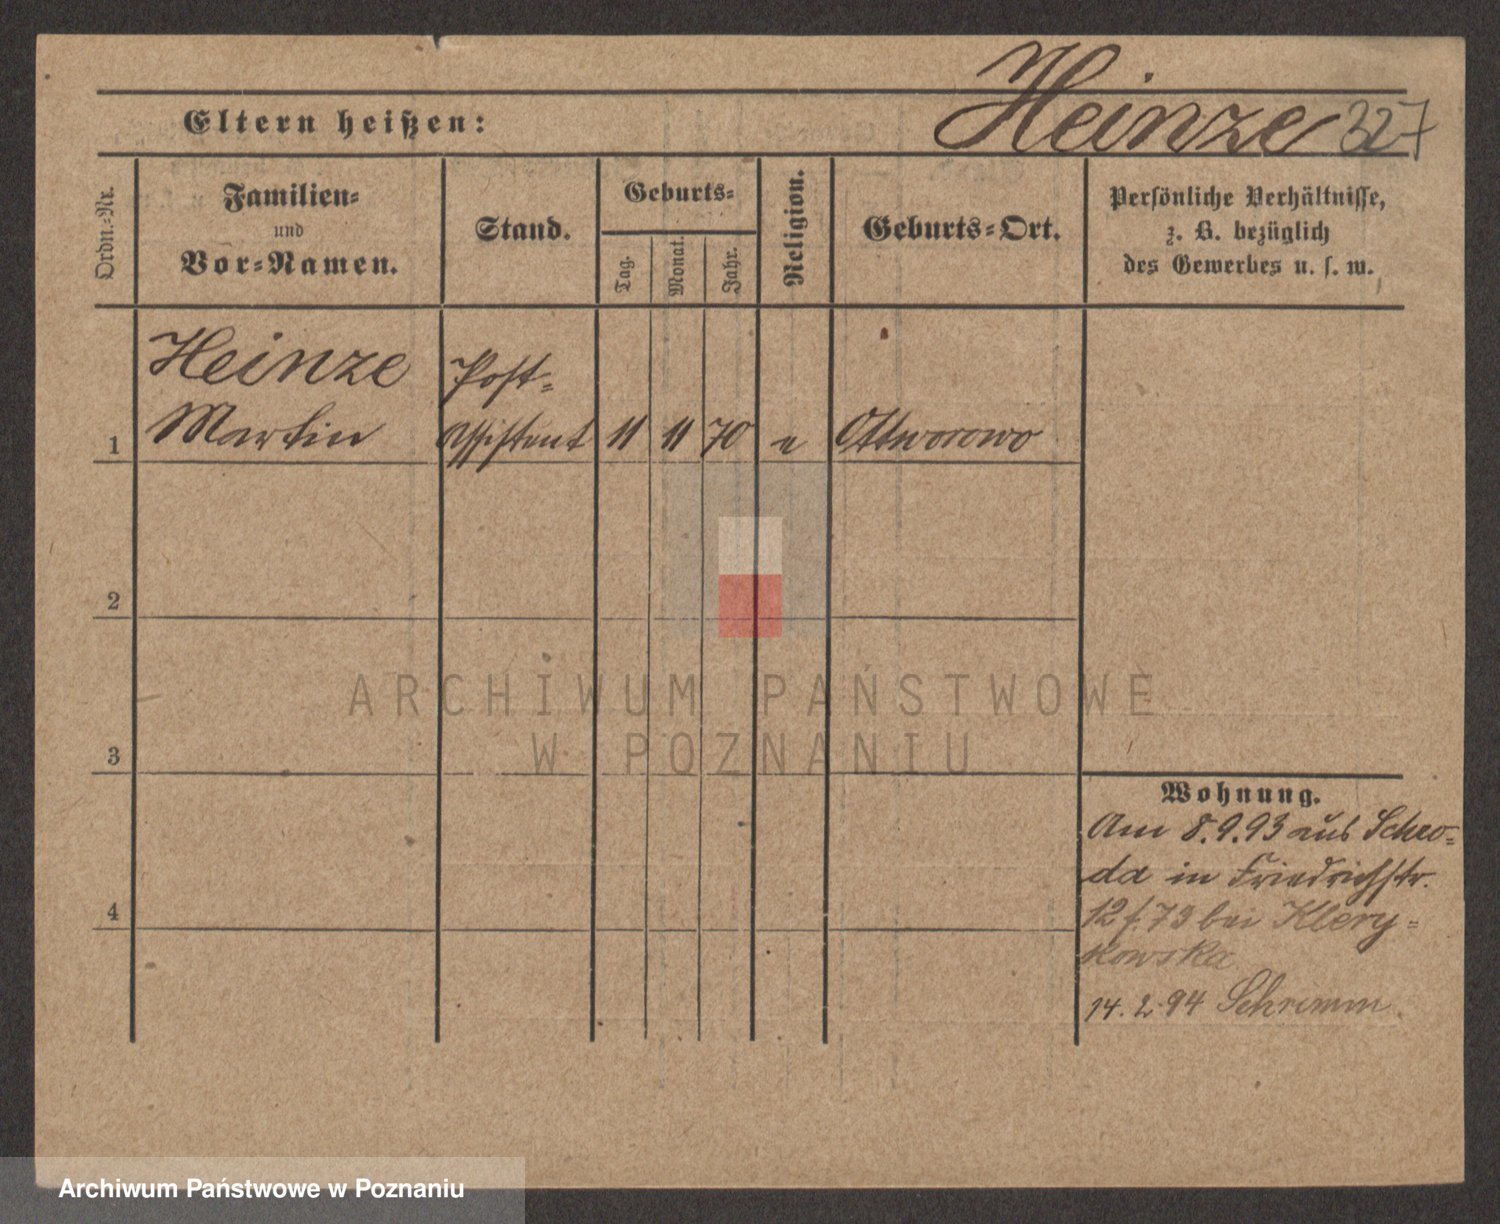 Heinze 327
Eltern heißen:
Ordn.-Nr.
Familien-
und
Vor-Namen.
Stand.
Geburts-
Tag.
Monat.
Jahr.
Religion.
Geburts-Ort.
Persönliche Verhältnisse,
z. B. bezüglich
des Gewerbes u. s. w.
Heinze
Martin
Post-
1 Assistent 11 11 70 e Ottworowo
2
3
4
Wohnung.
Am 8.9.93 aus Schro-
da in Friedrichstr.
12 f. 73 bei Klery-
kowska
14.2.94 Schrimm
ARCHIWUM PAŃSTWOWE
W POZNANIU
Archiwum Państwowe w Poznaniu